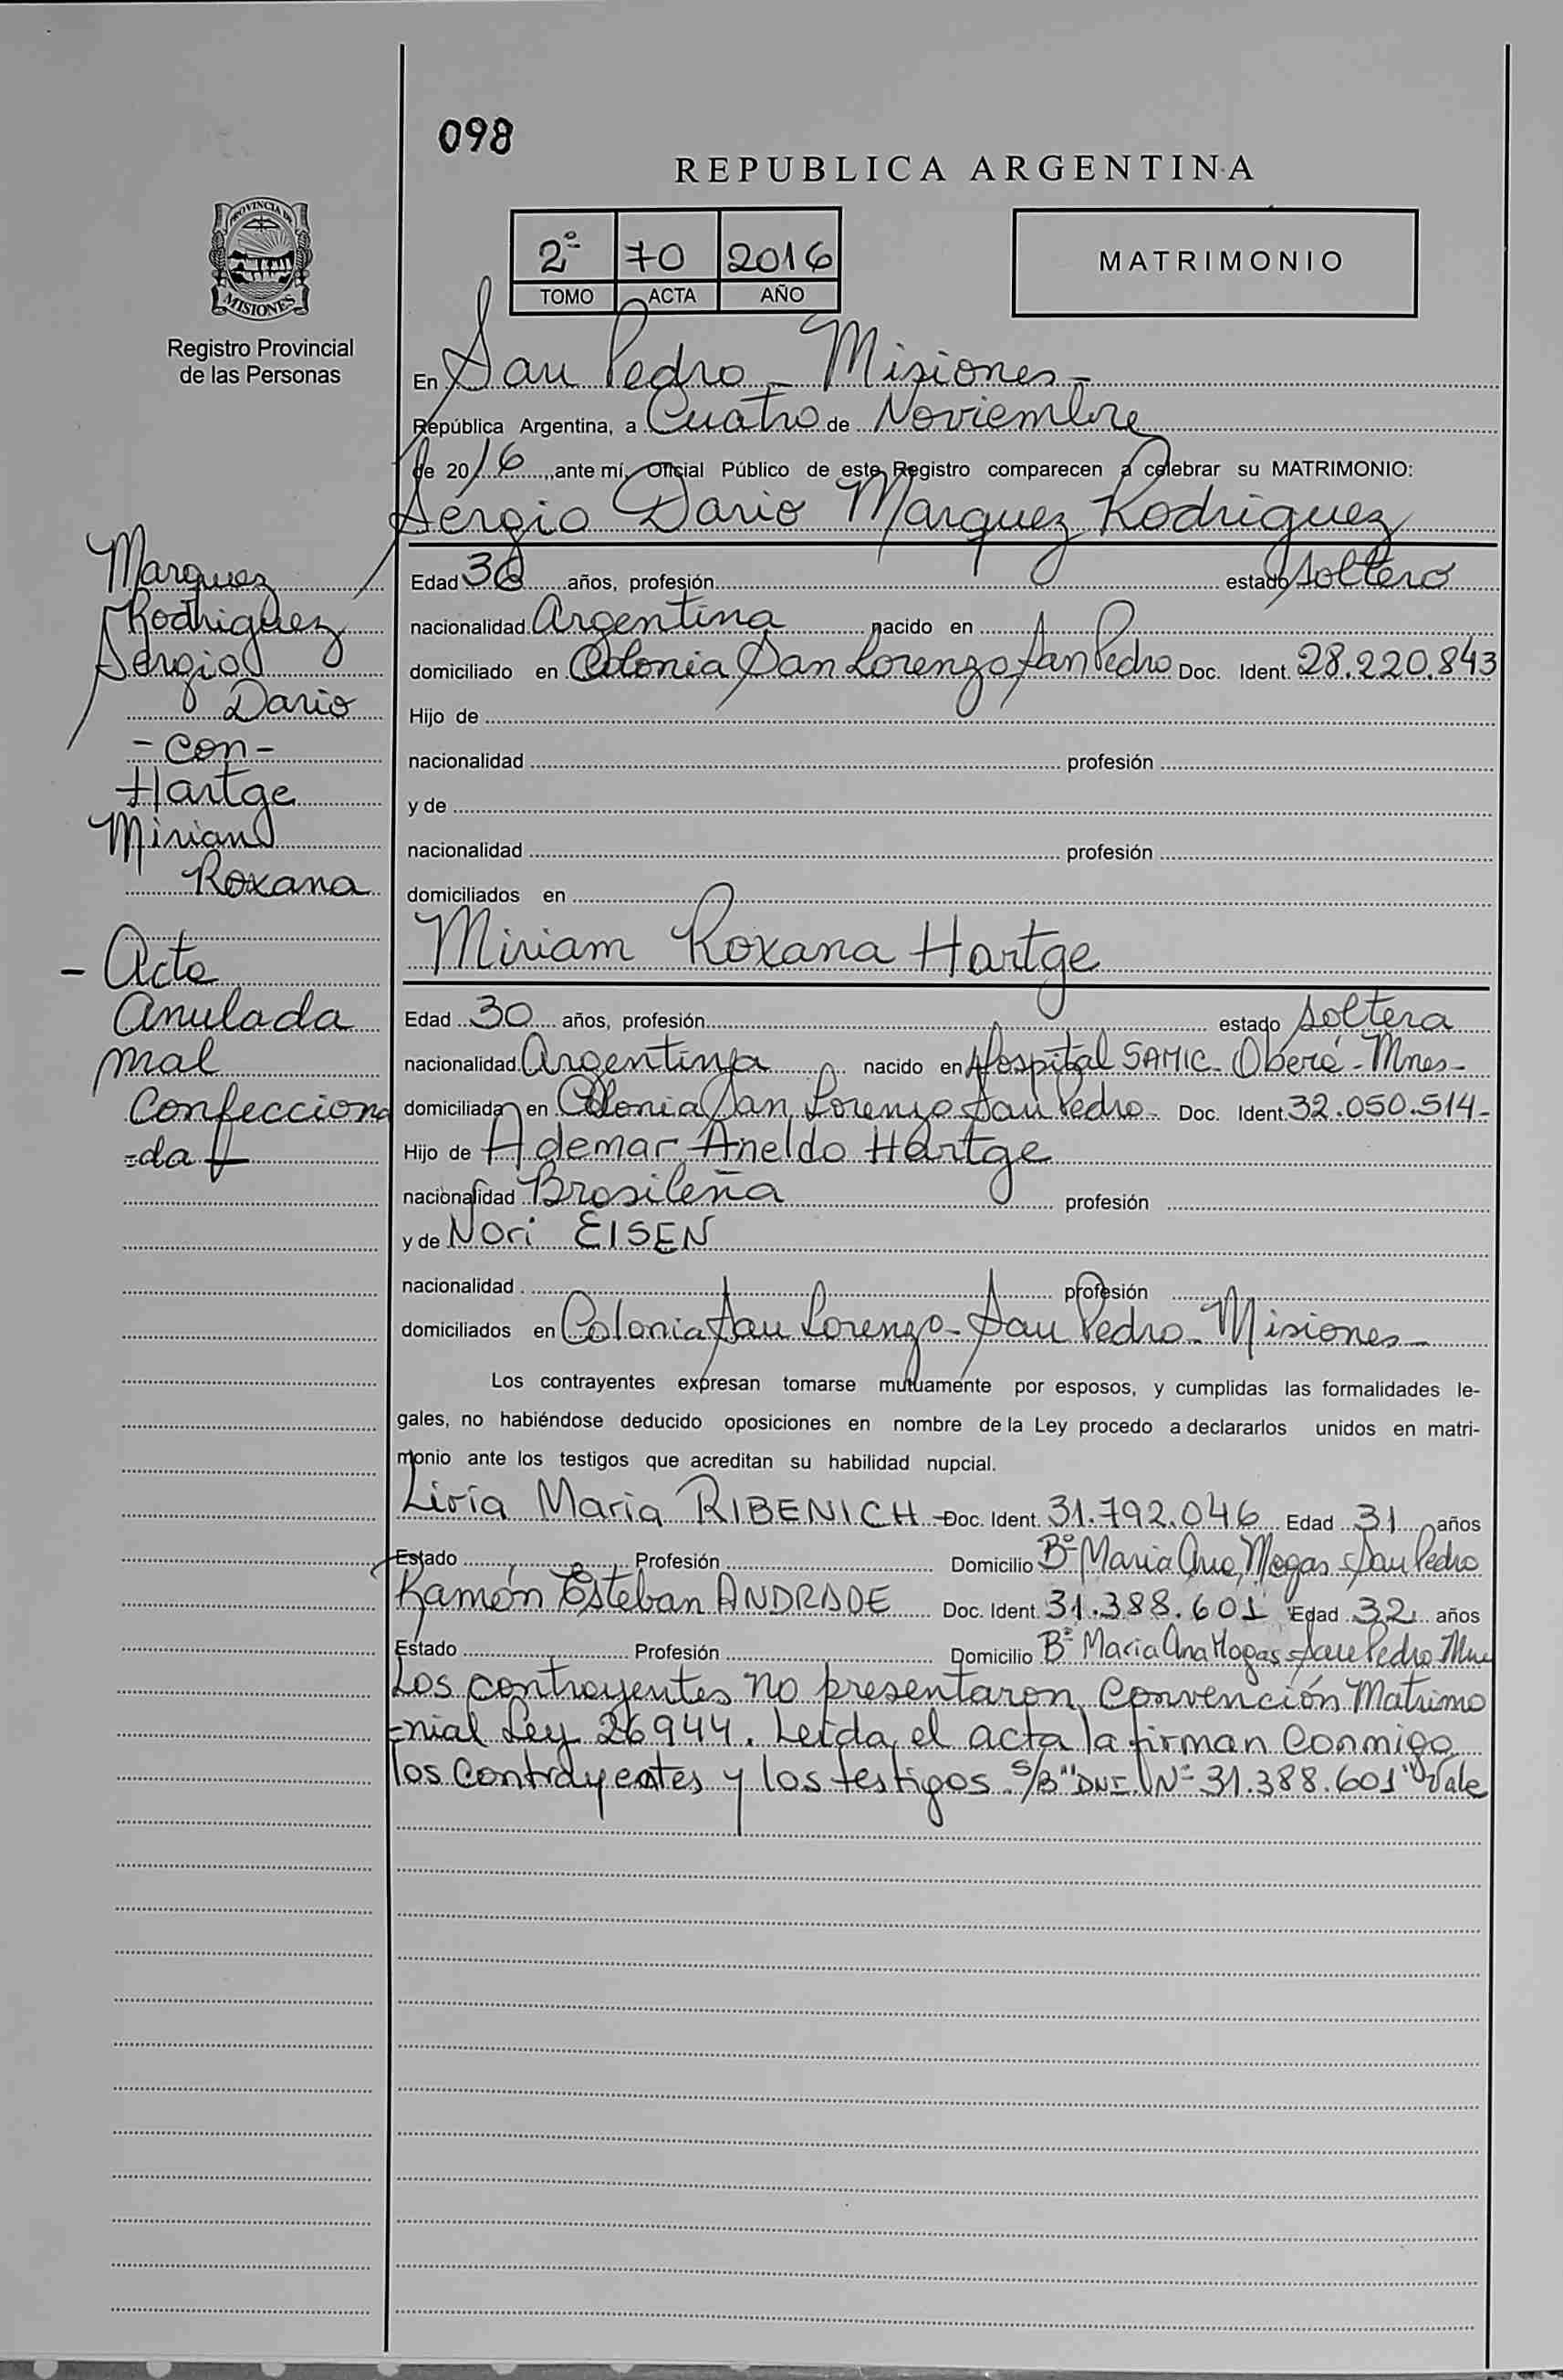 098
REPUBLICA ARGENTINA
PROVINCIA DE
MISIONES
Registro Provincial
de las Personas
2º 70 2016
TOMO ACTA AÑO
MATRIMONIO
En San Pedro - Misiones -
República Argentina, a Cuatro de Noviembre
de 2016, ante mí, Oficial Público de este Registro comparecen a celebrar su MATRIMONIO:
Sergio Dario Marquez Rodriguez
Edad 36 años, profesión estado soltero
nacionalidad Argentina nacido en
domiciliado en Colonia San Lorenzo San Pedro Doc. Ident. 28.220.843
Hijo de
nacionalidad profesión
y de
nacionalidad profesión
domiciliados en
Miriam Roxana Hartge
Edad 30 años, profesión estado soltera
nacionalidad Argentina nacido en Hospital SAMIC - Oberá - Mnes -
domiciliada en Colonia San Lorenzo San Pedro - Doc. Ident. 32.050.514 -
Hijo de Ademar Aneldo Hartge
nacionalidad Brasileña profesión
y de Nori EISEN
nacionalidad profesión
domiciliados en Colonia San Lorenzo - San Pedro - Misiones -
Los contrayentes expresan tomarse mutuamente por esposos, y cumplidas las formalidades le-
gales, no habiéndose deducido oposiciones en nombre de la Ley procedo a declararlos unidos en matri-
monio ante los testigos que acreditan su habilidad nupcial.
Liria Maria RIBENICH - Doc. Ident. 31.792.046 Edad 31 años
Estado Profesión Domicilio Bº Maria Ana Mogas San Pedro
Ramón Esteban ANDRADE Doc. Ident. 31.388.601 Edad 32 años
Estado Profesión Domicilio Bº Maria Ana Mogas San Pedro Mnes
Los contrayentes no presentaron Convención Matrimo
=nial Ley 26944. Leida el acta la firman Conmigo
los Contrayentes y los testigos S/B "DNI Nº 31.388.601" Vale
Marquez
Rodriguez
Sergio
Dario
- con -
Hartge
Mirian
Roxana
- Acta
anulada
mal
Confecciona
=da